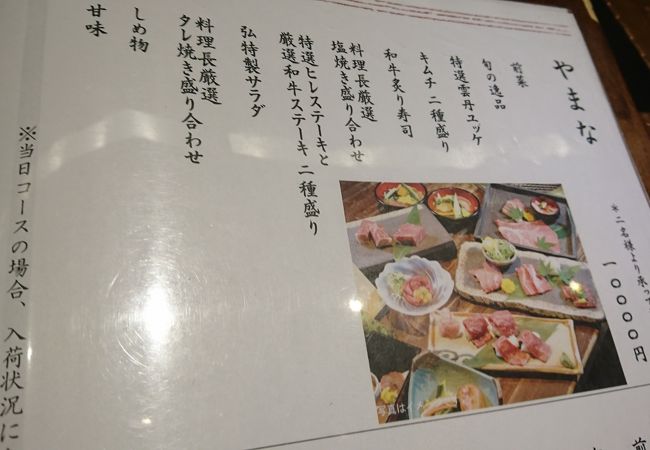 やまな
＊二名様より承って
一〇〇〇〇円
前菜
旬の逸品
特選雲丹ユッケ
キムチ二種盛り
和牛炙り寿司
料理長厳選
塩焼き盛り合わせ
特選ヒレステーキと
厳選和牛ステーキ二種盛り
弘特製サラダ
料理長厳選
タレ焼き盛り合わせ
しめ物
甘味
※当日コースの場合、入荷状況に
写真はイメ
前